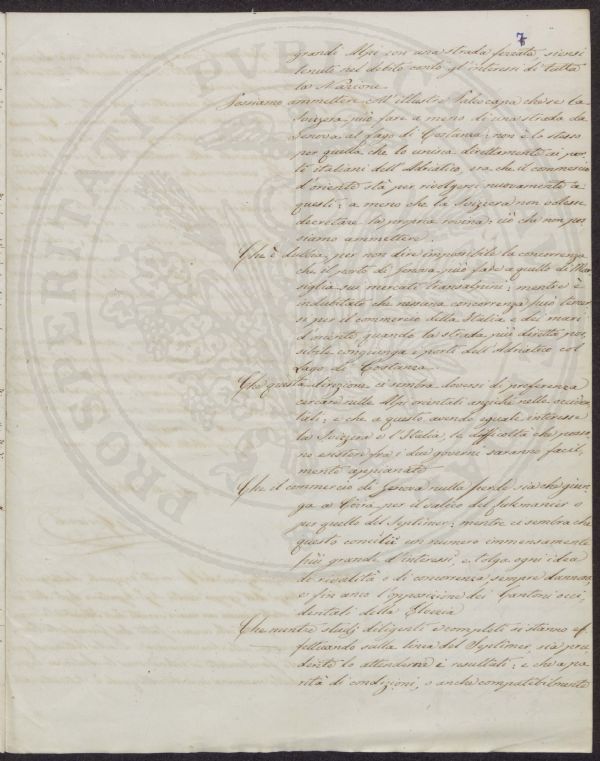 7
grandi Alpi con una strada ferrata siensi
tenuti nel debito conto gl'interessi di tutta
la Nazione.
Possiamo ammettere coll'illustre Paleocapa che se la
Svizzera può fare a meno di una strada da
Genova al Lago di Costanza; non è lo stesso
per quella che lo unisca direttamente ai por-
ti italiani dell'Adriatico, ora che il commercio
d'oriente stà per rivolgersi nuovamente a
questi; a meno che la Svizzera non volesse
decretare la propria rovina: ciò che non pos-
siamo ammettere.
Che è dubbia, per non dire impossibile la concorrenza
che il porto di Genova può fare a quello di Mar-
siglia sui mercati transalpini; mentre è
indubitato che nessuna concorrenza può temer-
si per il commercio della Italia e dei mari
d'oriente quando la strada più diretta pos-
sibile congiunga i porti dell'Adriatico col
Lago di Costanza.
Che questa direzione ci sembra doversi di preferenza
cercare nelle Alpi orientali anzichè nelle occiden-
tali; e che a questo avendo eguale interesse
la Svizzera e l'Italia, le difficoltà che posso-
no esistere fra i due governi saranno facil-
mente appianate.
Che il commercio di Genova nulla perde sia che giun-
ga a Coira per il valico del Lukmanier o
per quello del Septimer; mentre ci sembra che
questo concilii un numero immensamente
più grande d'interessi, e tolga ogni idea
di rivalità o di concorrenza sempre dannosa,
e fin anco l'opposizione dei Cantoni occi-
dentali della
Che mentre studj diligenti e completi si stanno ef-
fettuando sulla linea del Septimer, sia pru-
dente lo attenderne i resultati; e che a pa-
rità di condizioni, o anche compatibilmente
PROSPERITATI PUBLICAE